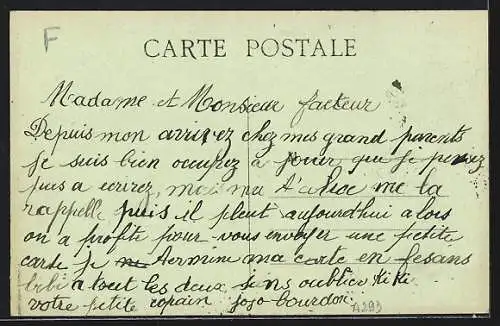 F
CARTE POSTALE
Madame et Monsieur facteur
Depuis mon arrivez chez mes grand parents
je suis bien occupez a jouer que je
puis a ecrirez, mai ma me la
rappelle puis il pleut aujourd'hui alors
on a profite pour vous envoyer une petite
carte je termine ma carte en fesans
bibi a tout les deux sans oublier Kiki
votre petite copain jojo bourdon
A293